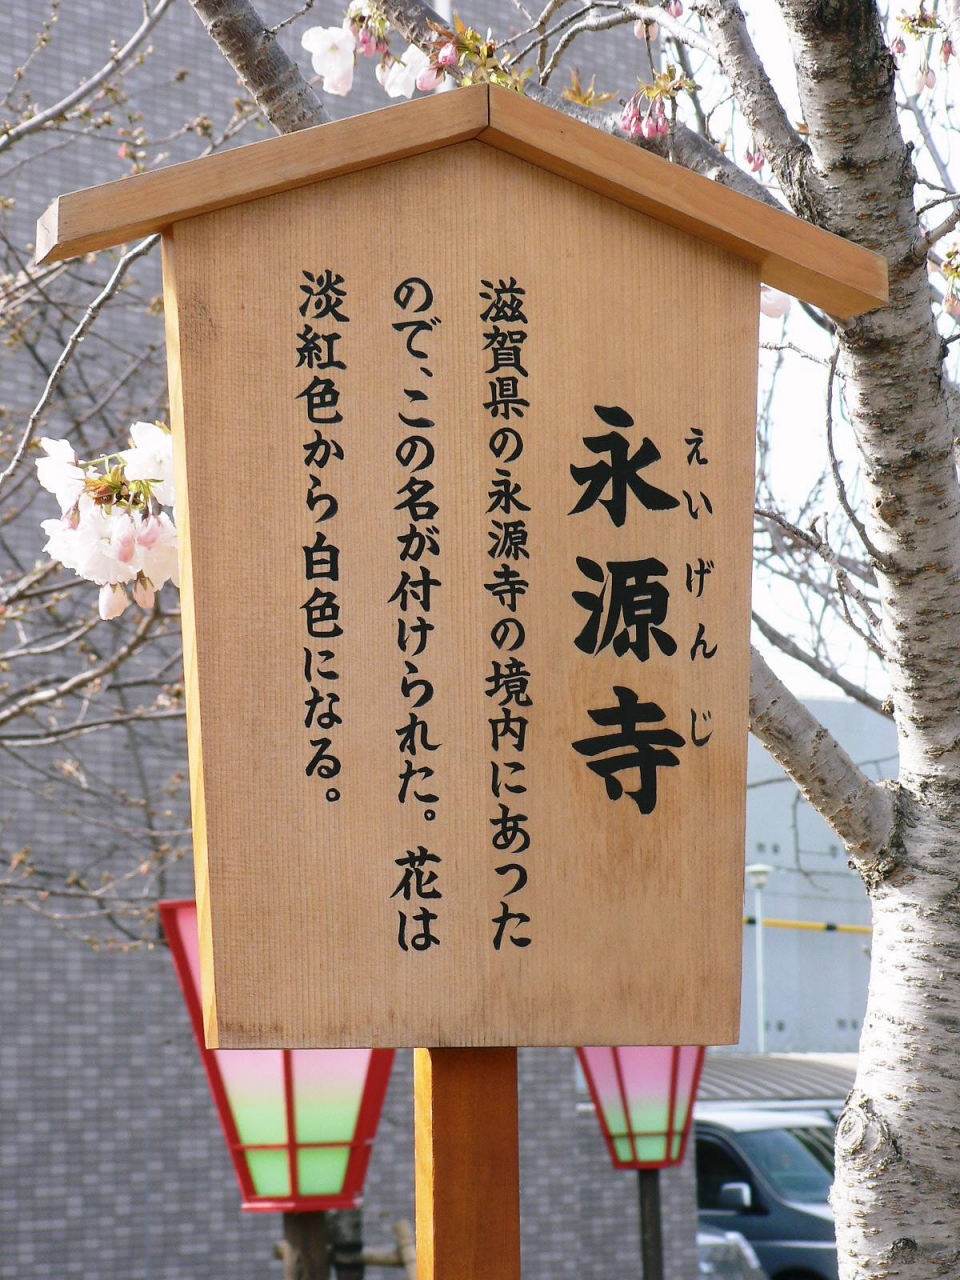 永源寺
えいげんじ
滋賀県の永源寺の境内にあった
ので、この名が付けられた。花は
淡紅色から白色になる。